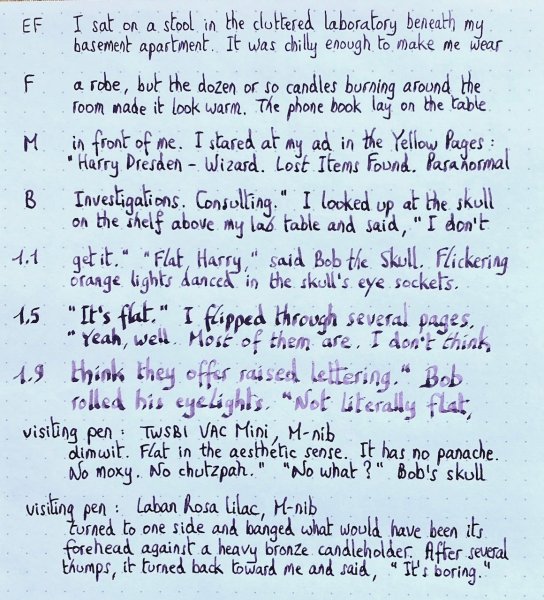 EF I sat on a stool in the cluttered laboratory beneath my
basement apartment. It was chilly enough to make me wear
F a robe, but the dozen or so candles burning around the
room made it look warm. The phone book lay on the table
M in front of me. I stared at my ad in the Yellow Pages :
"Harry Dresden – Wizard. Lost Items Found. Paranormal
B Investigations. Consulting." I looked up at the skull
on the shelf above my lab table and said, "I don't
1.1 get it." "Flat, Harry," said Bob the Skull. Flickering
orange lights danced in the skull's eye sockets.
1.5 "It's flat." I flipped through several pages.
"Yeah, well. Most of them are. I don't think
1.9 think they offer raised lettering." Bob
rolled his eyelights. "Not literally flat,
visiting pen : TWSBI VAC Mini, M-nib
dimwit. Flat in the aesthetic sense. It has no panache.
No moxy. No chutzpah." "No what ?" Bob's skull
visiting pen : Laban Rosa Lilac, M-nib
turned to one side and banged what would have been its
forehead against a heavy bronze candleholder. After several
thumps, it turned back toward me and said, "It's boring."